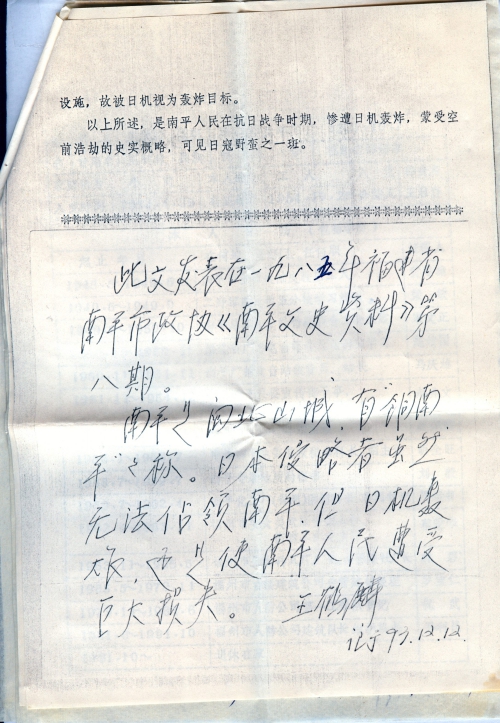 设施，故被日机视为轰炸目标。
以上所述，是南平人民在抗日战争时期，惨遭日机轰炸，蒙受空
前浩劫的史实概略，可见日寇野蛮之一班。
此文发表在一九八五年福建省
南平市政协《南平文史资料》第
八期。
南平是闽北山城，有“铜南
平”之称。日本侵略者虽然
无法占领南平，但日机轰
炸，还是使南平人民遭受
巨大损失。 王鹤麟
记于93.12.12.